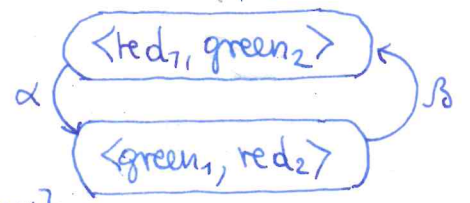 <red₁, green₂>
α
β
<green₁, red₂>